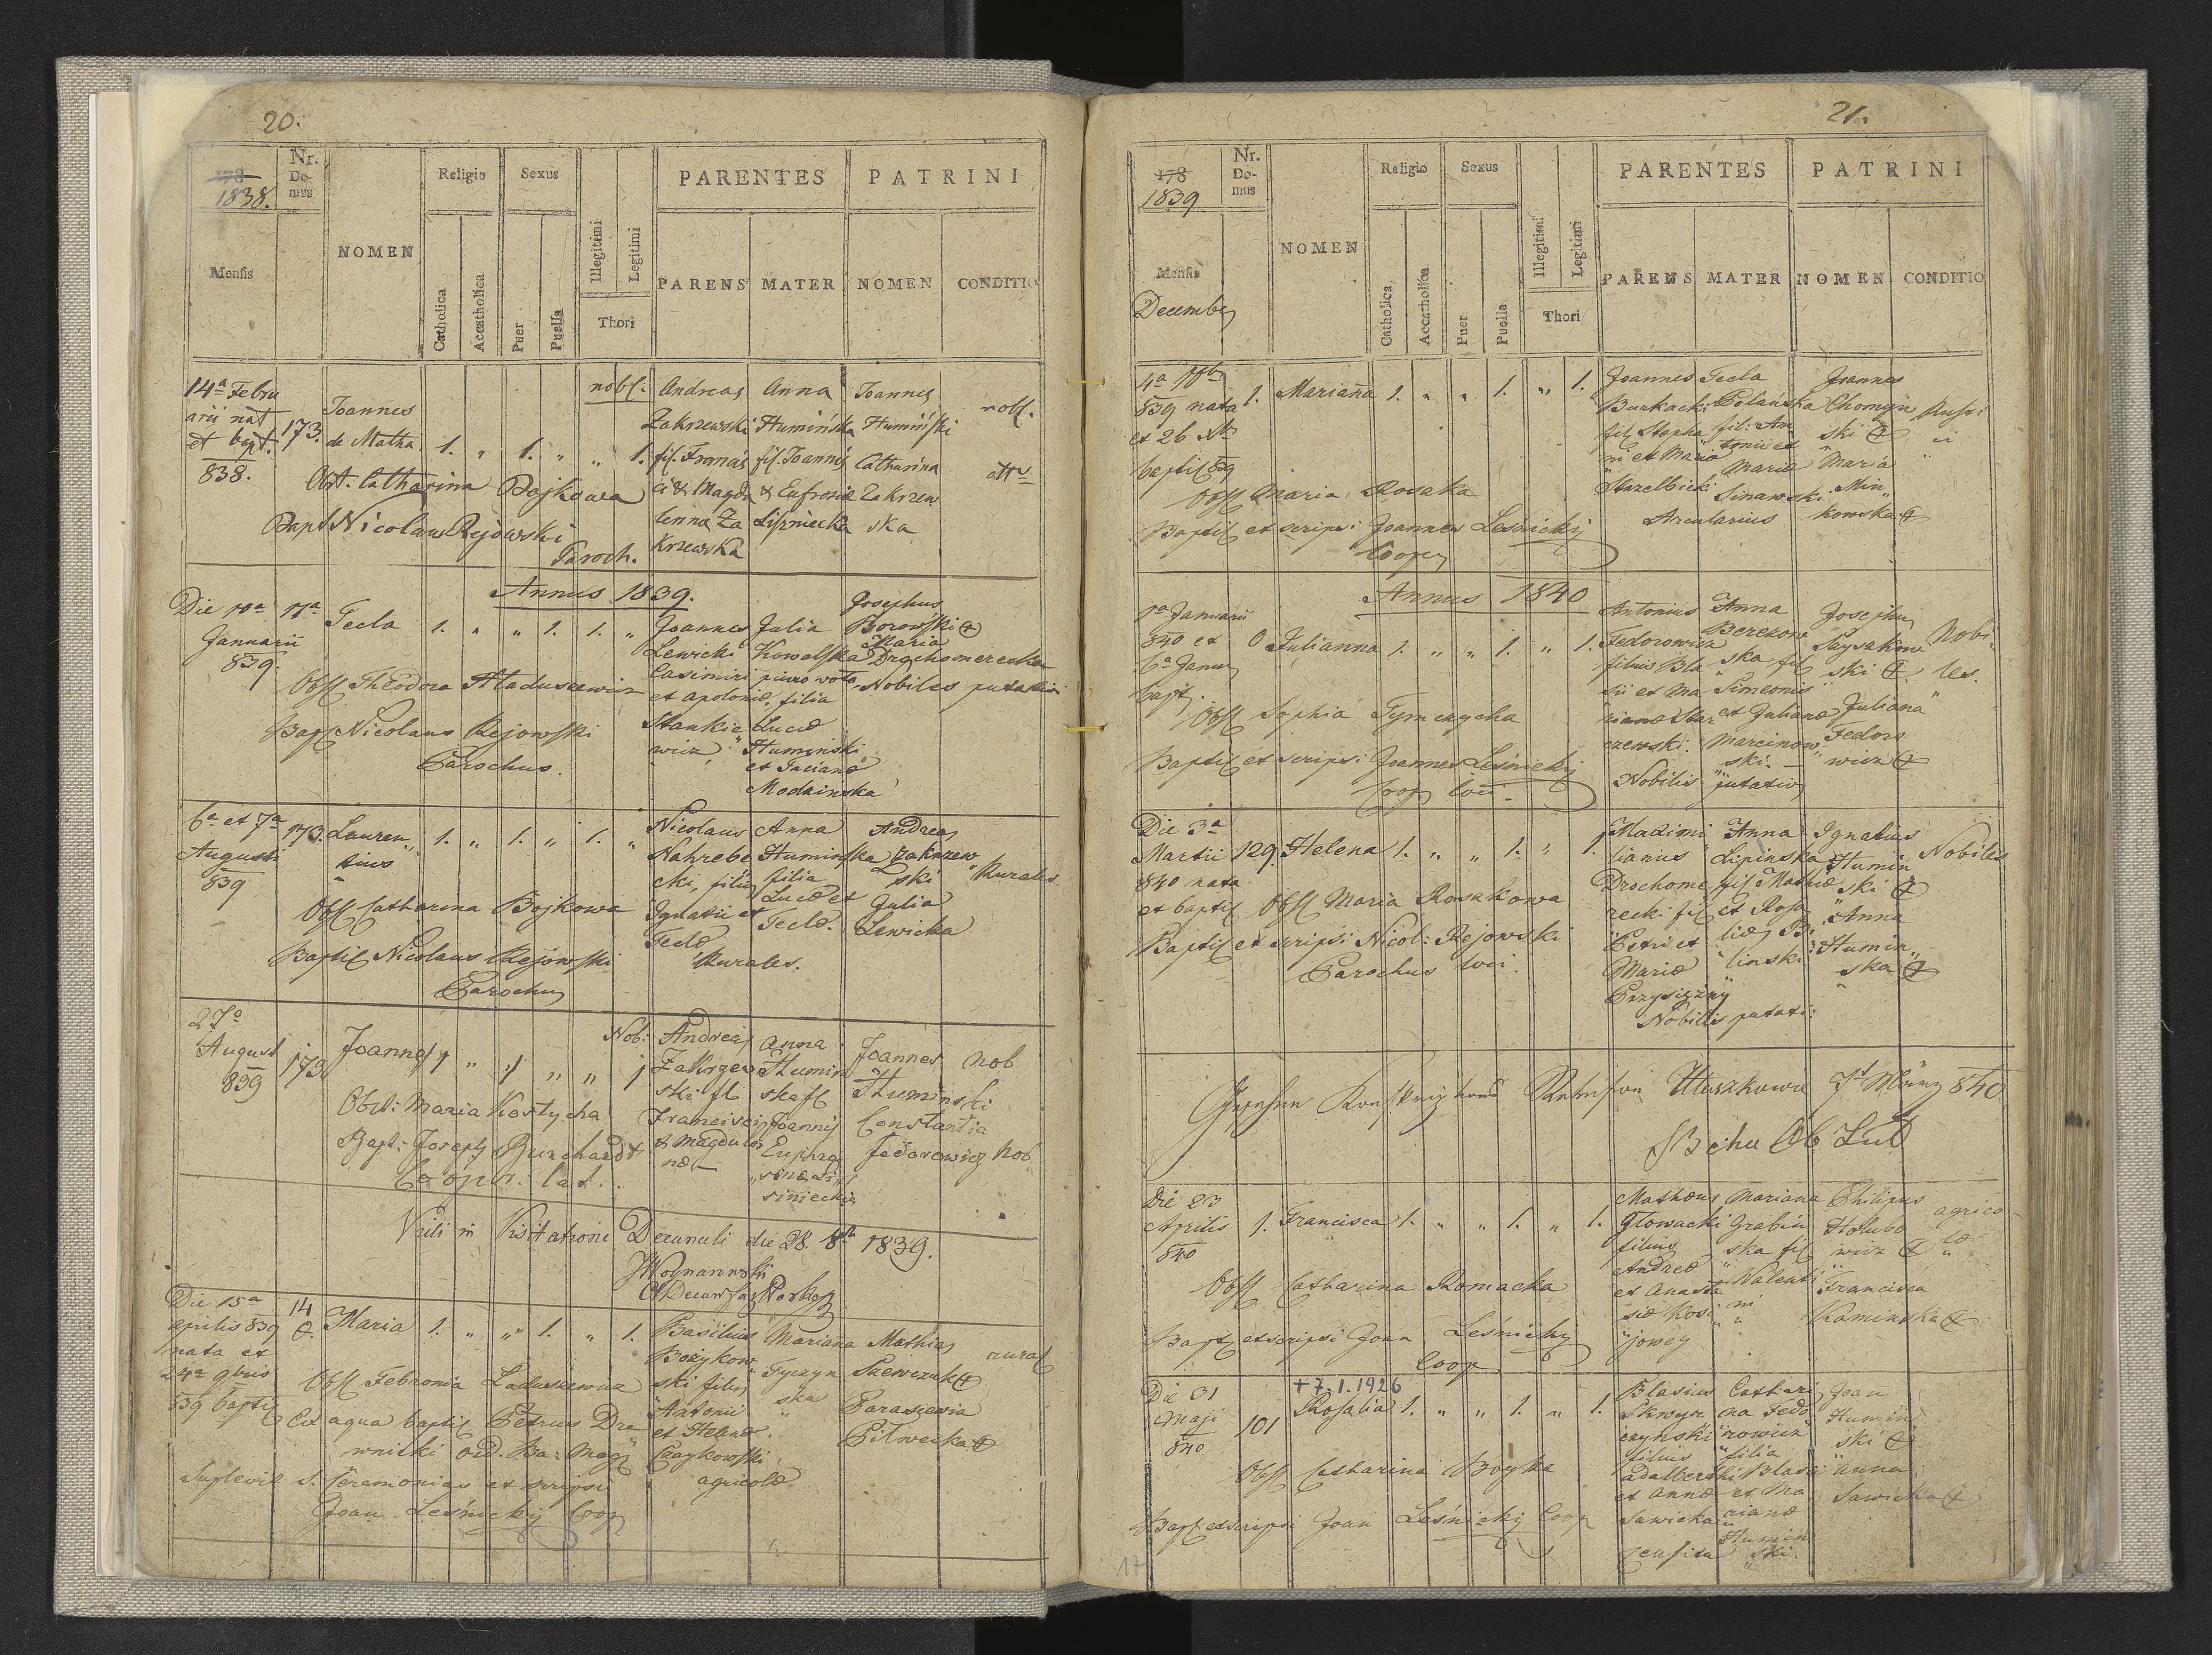 20.
178
1838.
Nr. Do- mus
NOMEN
Religio
Sexus
Illegitimi
Legitimi
PARENTES
PATRINI
Mensis
Catholica
Accatholica
Puer
Puella
Thori
PARENS
MATER
NOMEN
CONDITIO
14a Febru
arii nat
et bapt.
838.
173.
Joannes
de Matha
1. " 1. " " 1.
nobl.
Andreas
Zakrzewski
fil. Francis
ci & Magda
lenna Za
krzewska
Anna
Humińska
fil. Joannis
& Eufrosiæ
Lipniecka
Joannes
Humiński
Catharina
Zakrzew
ska
nobl.
Obst. Catharina Bojkowa
Bapt Nicolaus Rejowski
Paroch.
Annus 1839.
Die 10a
Januarii
839.
11a
Tecla
1. " " 1. 1. "
Joannes
Lewicki
Casimiri
et Apoloniæ
Stankie
wicz
Julia
Kowalska
primo voto
filia
Lucæ
Huminski
et Taciannæ
Modzinska
Josephus
Borowski
Maria
Drohomerecka
Nobiles putativi
Obst Theodora Aladuszewicz
Bapt Nicolaus Rejowski
Parochus.
6a et 7a
Augusti
839
173.
Lauren
tius
1. " 1. " 1. "
Nicolaus
Nahrebe
cki, filius
Ignatii et
Teclæ
Anna
Huminska
filia
Lucæ et
Teclæ.
Rurales.
Andreas
Zakrzew
ski
Julia
Lewicka
Rurales
Obst Catharina Bojkowa
Baptis Nicolaus Rejowski
Parochus
27a
August
839
173
Joannes
1 " 1 " " 1
Nob:
Andreas
Zakrzew
ski fl
Francisci
& Magdale
næ
Anna
Humin
ska fl
Joannis
Euphro
sinæ Li
siniecka
Joannes
Huminski
Constantia
Fedorowicz
nob
Nob
Obst: Maria Kostycha
Bapt: Joseph Burchardt
Coop. lat.
Vidi in Visitatione Decanali die 28. 8bris 1839.
Die 15a
aprilis 839
nata et
24a 9bris
839 bapti
14
Maria
1. " " 1. " 1.
Basilius
Bożykow
ski filius
Antonii
et Helenæ
Czaykowski
agricolæ
Mariana
Tyczyn
ska
Mathias
Szewczuk
Paraszewia
Pilwecka
rural
Obst Febronia Laduszewicz
Ex aqua baptis Petrus Dre
wnicki Ord. Ba: Mag
Suplevit S. Ceremonias et scripsi
Joan Leśnicky Coop
21.
178
1839
Nr. Do- mus
NOMEN
Religio
Sexus
Illegitimi
Legitimi
PARENTES
PATRINI
Mensis
December
Catholica
Accatholica
Puer
Puella
Thori
PARENS
MATER
NOMEN
CONDITIO
839 nata
et 26 Xbr
baptis 839
1.
Marianna
1. " " 1. " 1.
Joannes
Burkacki
fil Stepha
ni et Maria
Strzelbicki
Tecla
Polańska
fil: An
tonii et
Mariæ
Sinawski
Arcularius
Joannes
Chomyń
ski
Maria
Min
kowska
Obst Maria Rosaka
Baptis et scripsi Joannes Leśnicky
Coop
Annus 1840
1a Januarii
840 et
6a Janu
bapt.
0
Julianna
1. " " 1. " 1.
Antonius
Fedorowicz
filius Bla
sii et Ma
rianæ Star
czewski.
Nobilis
Anna
Berezow
ska fil
Simeonis
et Julianæ
Marcinow
ski.
putativ
Josephus
Saysakow
ski
Juliana
Fedoro
wicz
Nobi
les.
Obst Sophia Tymczycha
Baptis et scripsi Joannes Leśnicky
Coop loci.
Die 3a
Martii
840 nata
et baptis
129
Helena
1. " " 1. " 1.
Maximi
lianus
Drochome
recki fil
Petri et
Mariæ
Przysiężny
Nobilis putati:
Anna
Lipinska
fil Mathiæ
et Rosa
liæ Bi
linski
Ignatius
Humin
ski
Anna
Humin
ska
Nobiles
Obst Maria Rosakowa
Baptis et scripsi Nicol: Rejowski
Parochus loci.
840
Die 23
Aprilis
840
1.
Francisca
1. " " 1. " 1.
Mathæus
Głowacki
filius
Andreæ
et Anasta
siæ Kosi
jowey
Mariana
Grabin
ska fil
Walenti
ni
Philipus
Holubo
wicz
Francisca
Kaminska
agrico
læ
Obst Catharina Romacka
Bapt et scripsi Joan Leśnicky
Coop
Die 31
Maji
840
101
+ 7.1.1926
Rosalia
1. " " 1. " 1.
Blasius
Skwyr
czynski
filius
Adalberti
et Annæ
Sawicka
Cathari
na Fedo
rowicz
filia
Blasii
et Ma
rianæ
Humin
ski
Joan
Humin
ski
Anna
Sawicka
Obst Catharina Boyka
Bapt et scripsi Joan Leśnicky Coop
17